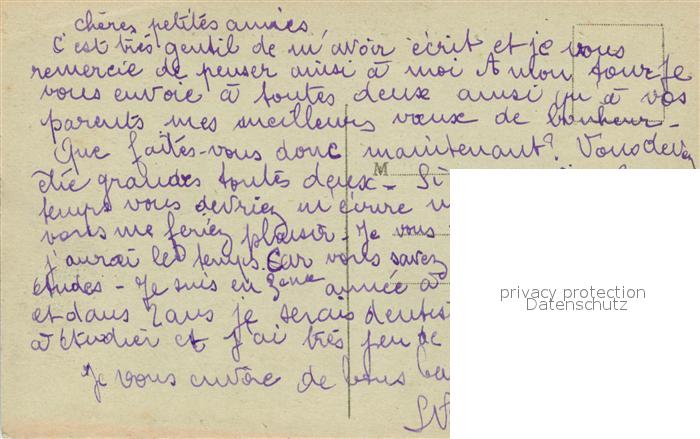 chères petites amies
C'est très gentil de m'avoir écrit et je vous
remercie de penser ainsi à moi A mon tour je
vous envoie à toutes deux ainsi qu'à vos
parents mes meilleurs vœux de bonheur -
Que faites-vous donc maintenant? Vous devez
M
être grandes toutes deux - Si
temps vous devriez m'écrire
vous me feriez plaisir - Je vous
j'aurai le temps. Car vous savez
études - Je suis en 3eme année à
et dans 2 ans je serais dentist
à étudier et j'ai très peu de
Je vous envoie de bons
privacy protection
Datenschutz